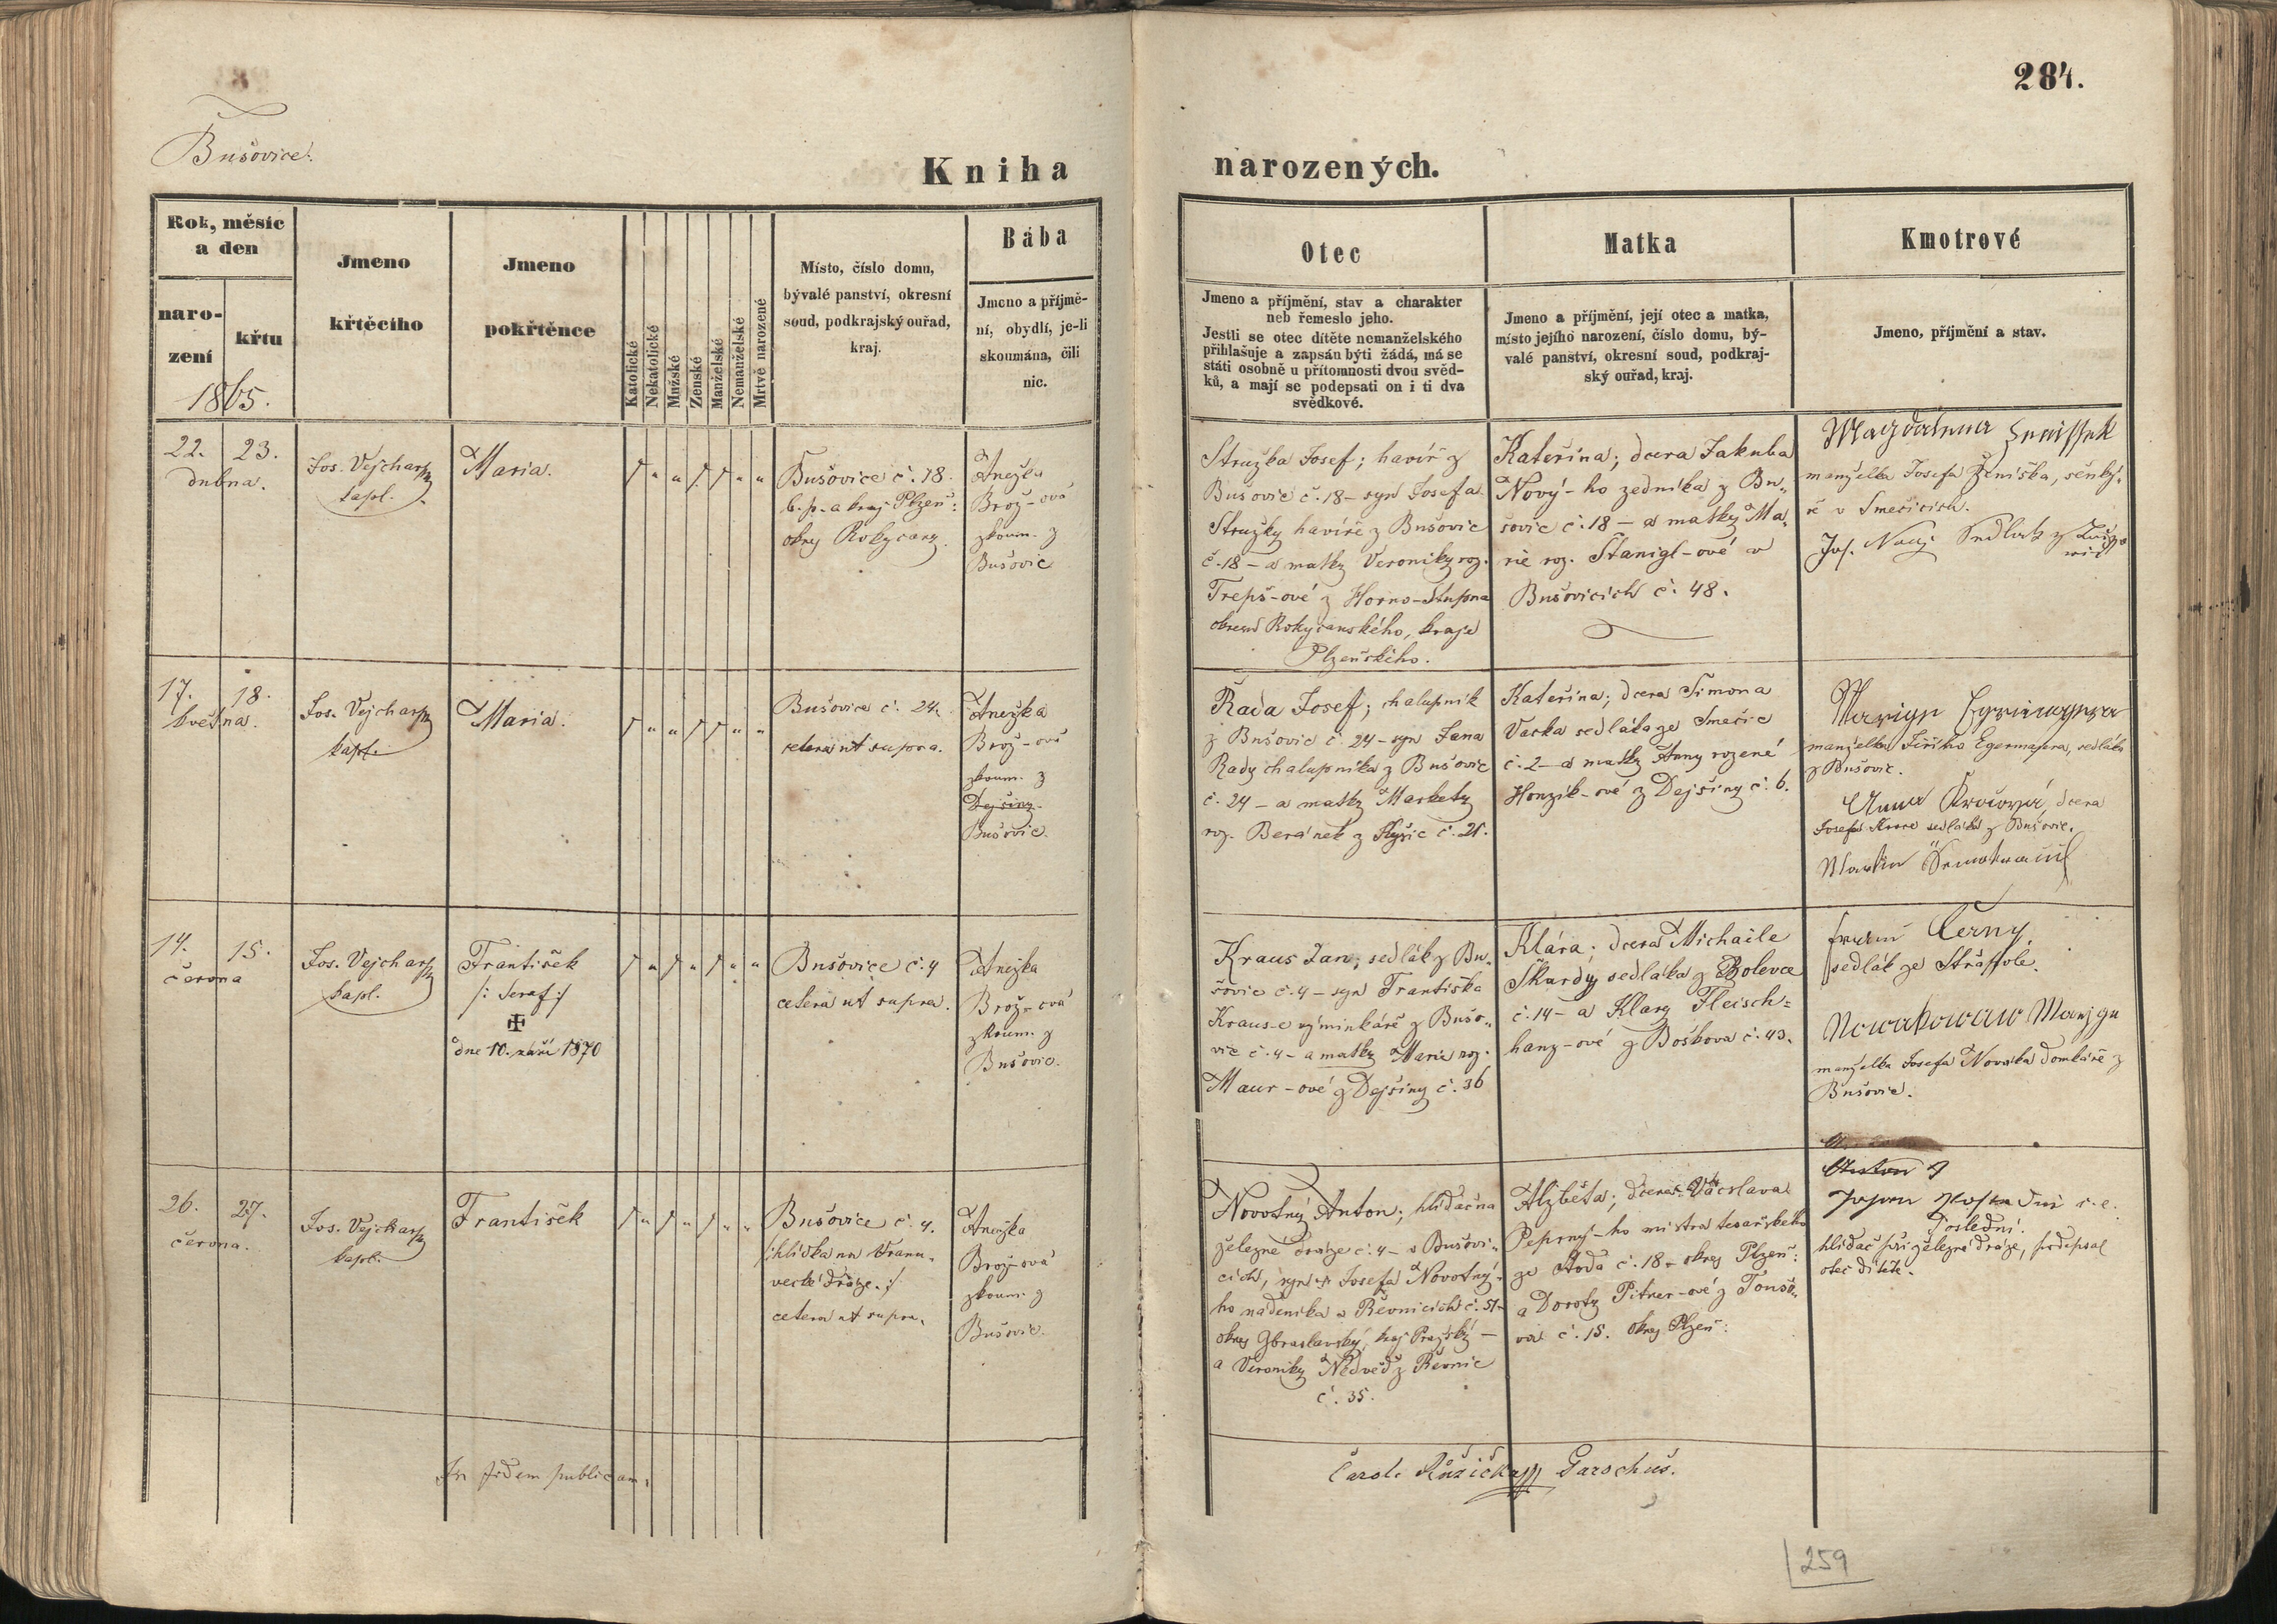 284.
Bušovice.
Kniha narozených.
Rok, měsíc
a den
naro-
zení
křtu
1865.
Jmeno
křtěcího
Jmeno
pokřtěnce
Katolické
Nekatolické
Mužské
Ženské
Manželské
Nemanželské
Mrtvě narozené
Místo, číslo domu,
bývalé panství, okresní
soud, podkrajský ouřad,
kraj.
Bába
Jmeno a příjmě-
ní, obydlí, je-li
skoumána, čili
nic.
Otec
Jmeno a příjmění, stav a charakter
neb řemeslo jeho.
Jestli se otec dítěte nemanželského
přihlašuje a zapsán býti žádá, má se
státi osobně u přítomnosti dvou svěd-
ků, a mají se podepsati on i ti dva
svědkové.
Matka
Jmeno a příjmění, její otec a matka,
místo jejího narození, číslo domu, bý-
valé panství, okresní soud, podkraj-
ský ouřad, kraj.
Kmotrové
Jmeno, příjmění a stav.
22. 23.
dubna.
Jos. Vejchar
kapl.
Maria.
Bušovice č. 18.
b. p. a kraj Plzeň:
okres Rokycany.
Anežka
Brož-ová
zkoum. z
Bušovic
Stružka Josef; havíř z
Bušovic č. 18 – syn Josefa
Stružky havíře z Bušovic
č. 18 – a matky Veroniky roz.
Trepš-ové z Horno-Stupna
okresu Rokycanského, kraje
Plzeňského.
Kateřina; dcera Jakuba
Nový-ho zedníka z Bu„
šovic č. 18 – a matky Ma„
rie roz. Štanigl-ové v
Bušovicích č. 48.
Magdalena
manželka Josefa Ženíška, šenký„
ře v Smečicích.
Jos.
17. 18.
května.
Jos. Vejchar
kapl.
Maria.
Bušovice č. 24.
cetera ut supra.
Anežka
Brož-ová
zkoum. z
Dejšiny
Bušovic.
Rada Josef; chalupník
z Bušovic č. 24 – syn Jana
Rady chalupníka z Bušovic
č. 24 – a matky Markety
roz. Beránek z Kyšic č. 21.
Kateřina; dcera Šimona
Vacka sedláka ze Smečic
č. 2 – a matky Anny rozené
Honzík-ové z Dejšiny č. 6.
manželka Jiřího Egermajera, sedláka
z Bušovic.
Anna Krocová, dcera
Josefa Kroce sedláka z Bušovic.
Martin
14. 15.
června
Jos. Vejchar
kapl.
František
/: Seraf :/
✠
dne 10. září 1870
Bušovice č. 4
cetera ut supra.
Anežka
Brož-ová
zkoum. z
Bušovic.
Kraus Jan; sedlák z Bu„
šovic č. 4 – syn Františka
Kraus-e výminkáře z Bušo„
vic č. 4 – a matky Marie roz.
Maur-ové z Dejšiny č. 36
Klára; dcera Michaile
Škardy sedláka z Bolevce
č. 14 – a Klary Fleisch=
hanz-ové z Boškova č. 43.
Černy,
sedlák ze Střapole.
Nowakowaw Marzya
manželka Josefa Nováka domkáře z
Bušovic.
26. 27.
června.
Jos. Vejchar
kapl.
František
Bušovice č. 4.
/: hlídka na Vranu„
vecké dráze. :/
cetera ut supra.
Anežka
Brož-ová
zkoum. z
Bušovic.
Novotný Anton; hlídač na
železné dráze č. 4 – v Bušovi„
cích, syn Josefa Novotný-
ho nádeníka v Řevnicích č. 51
okres Zbraslavský, kraj Pražský –
a Veroniky Nedvěd z Řevnic
č. 35.
Alžběta; dcera Václava
Peprný-ho mistra tesařského
ze Stoda č. 18 – okres Plzeň:
a Doroty Pitner-ové z Touško„
va č. 15. okres Plzeň:
Anton
Poslední.
hlídač při železné dráze, podepsal
otec dítěte.
In fidem publicam:
Carol. Růžička Parochus.
259